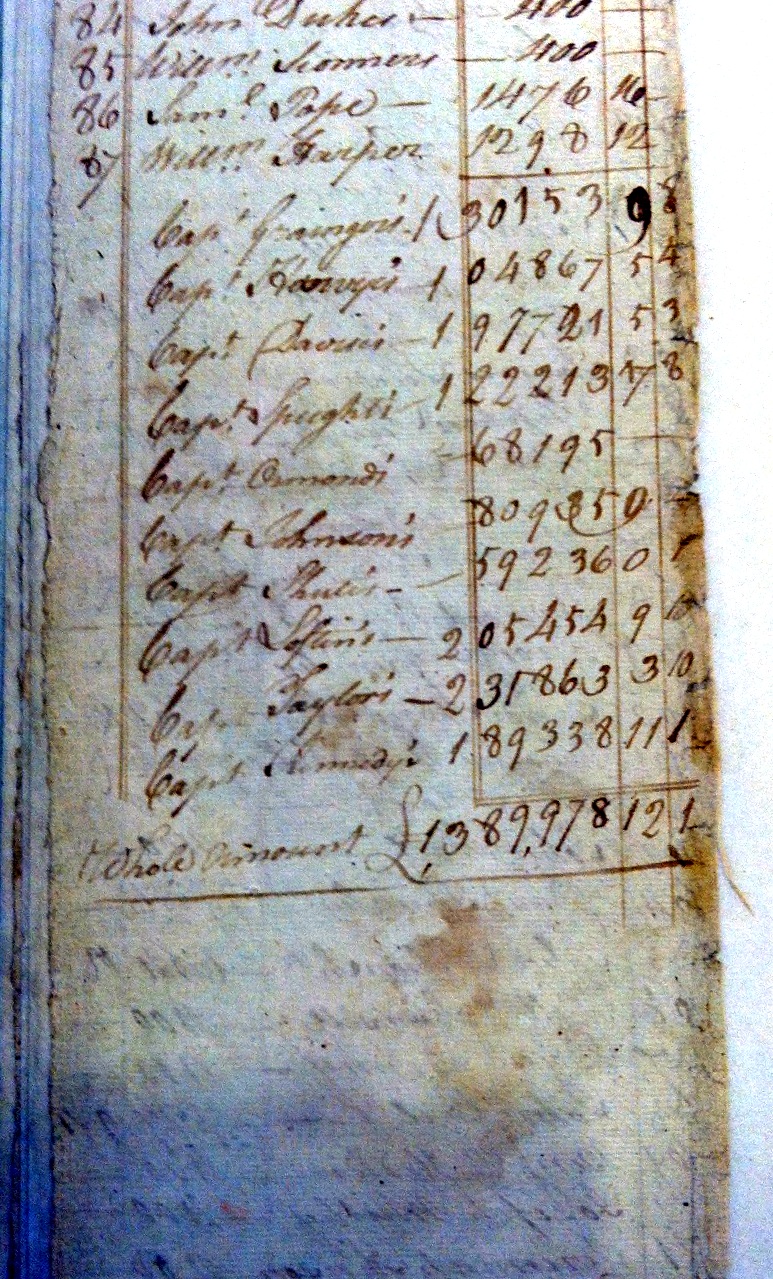 84 John Dukes — 400 —
85 Willm. — 400 —
86 Saml. Pope — 1476 16 —
87 Willm. Harper 1298 12
Capt. Graingers 130153 9 8
Capt. 104867 5 4
Capt. Davises — 197721 5 3
Capt. Speights 122213 17 8
Capt. Ormonds — 68195 —
Capt Johnsons
Capt Shutes —
Capt Loftins — 205454 9 10
Cap Taylors — 231863 3 10
Capt Kennedys 189338 11 1
Whole Amount £1,389,978 12 1